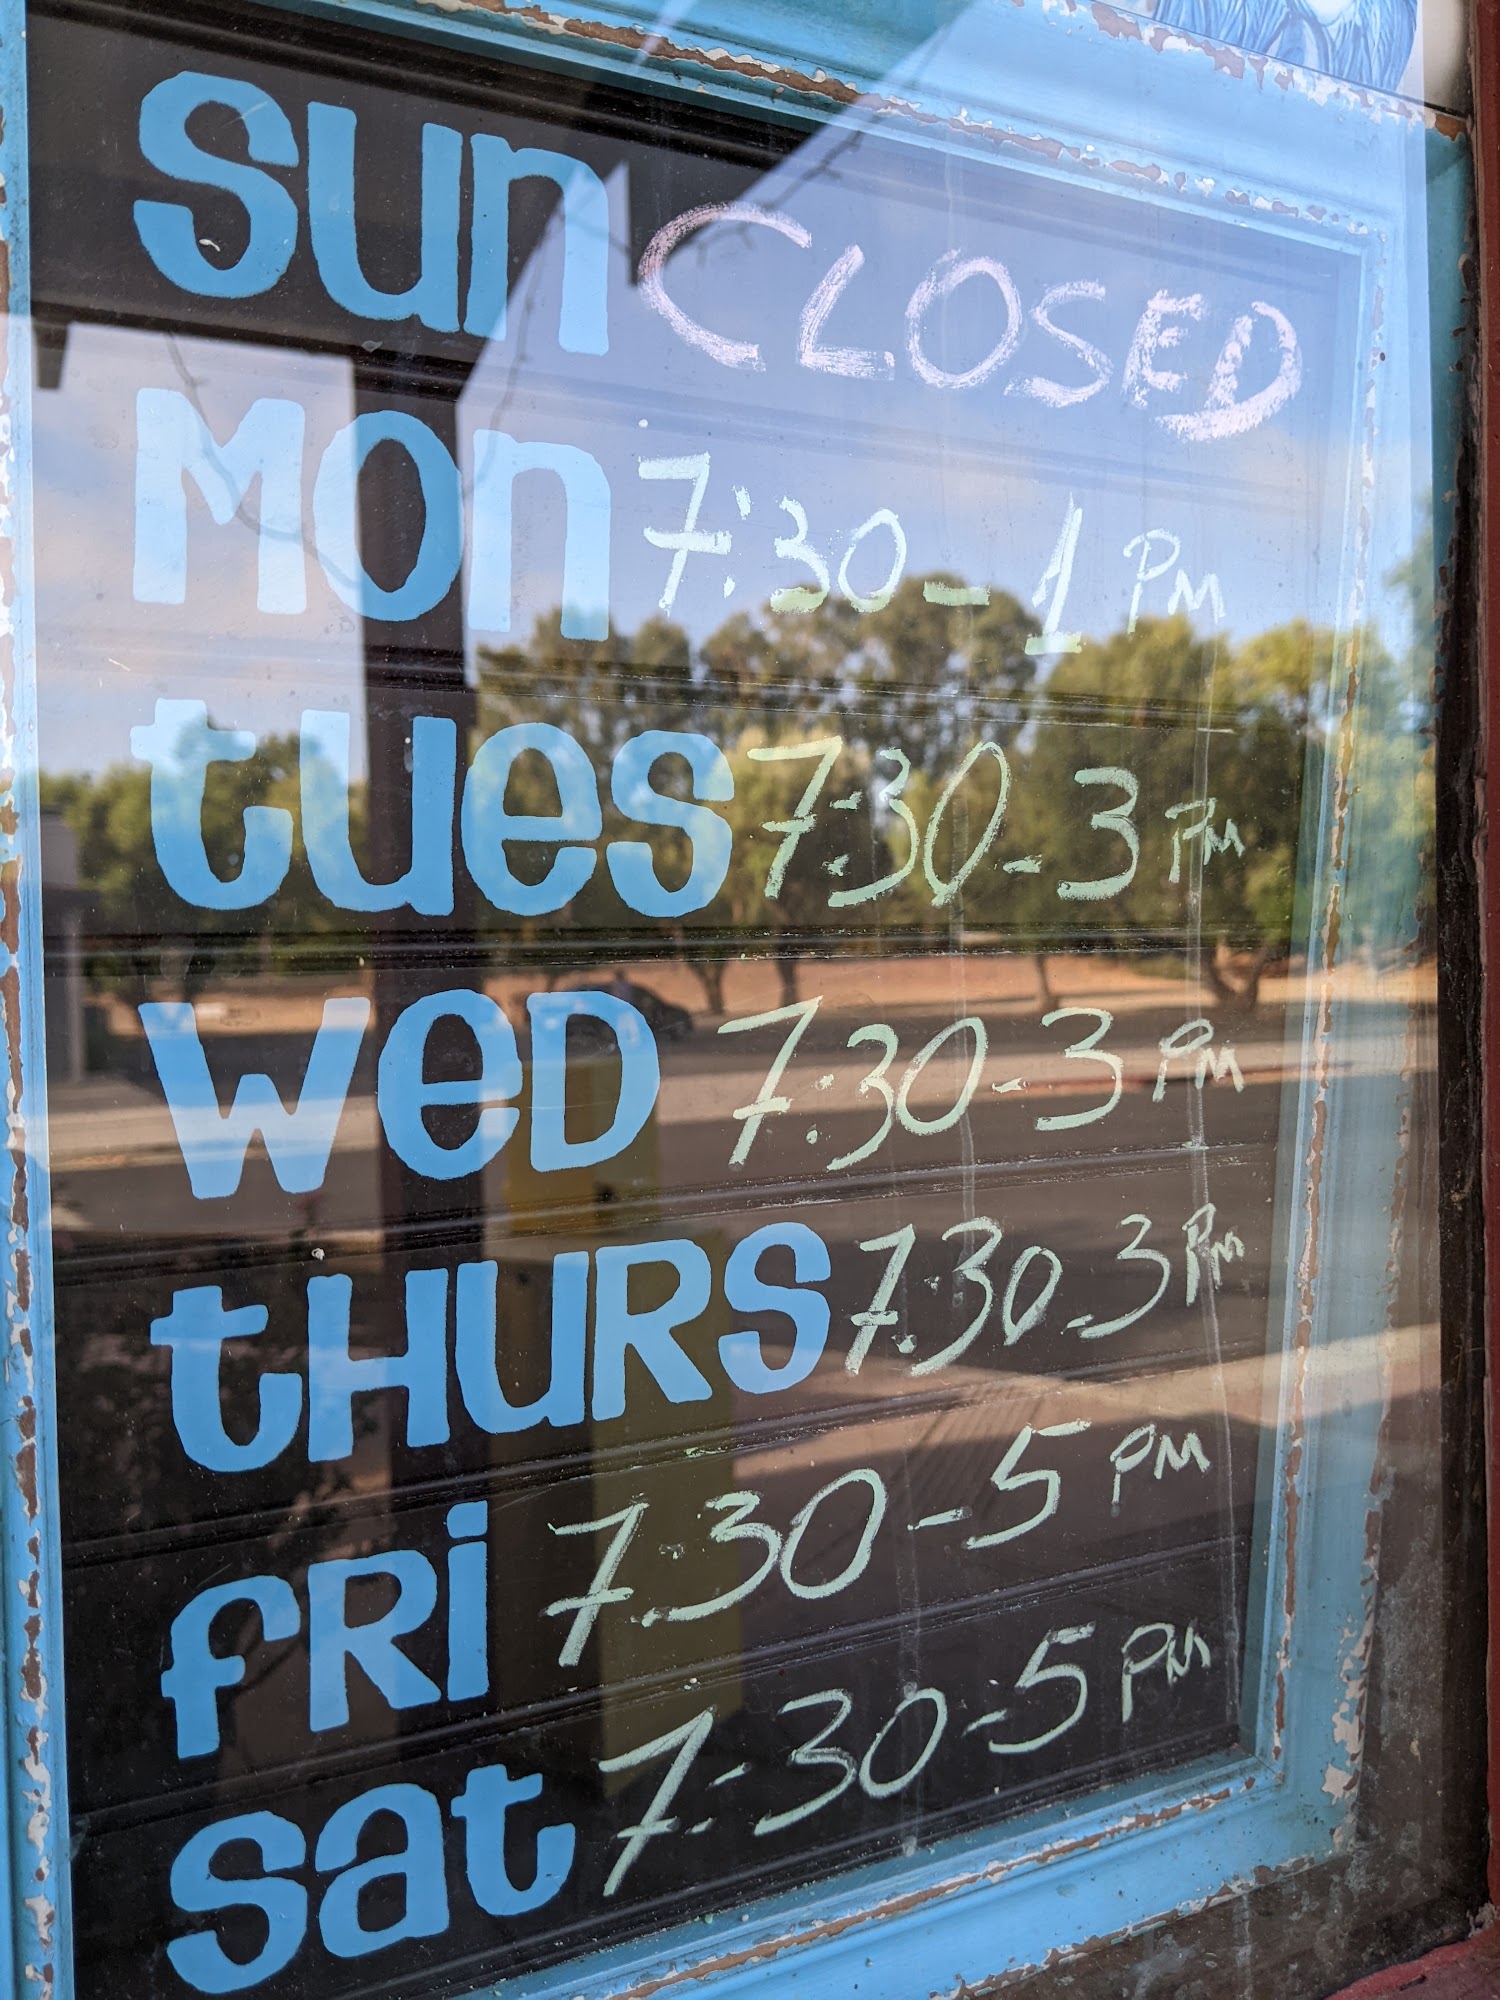 sun CLOSED
MON 7:30-1 PM
tues 7:30-3 PM
weD 7:30-3 PM
tHURS 7:30-3 PM
fRi 7:30-5 PM
sat 7:30-5 PM